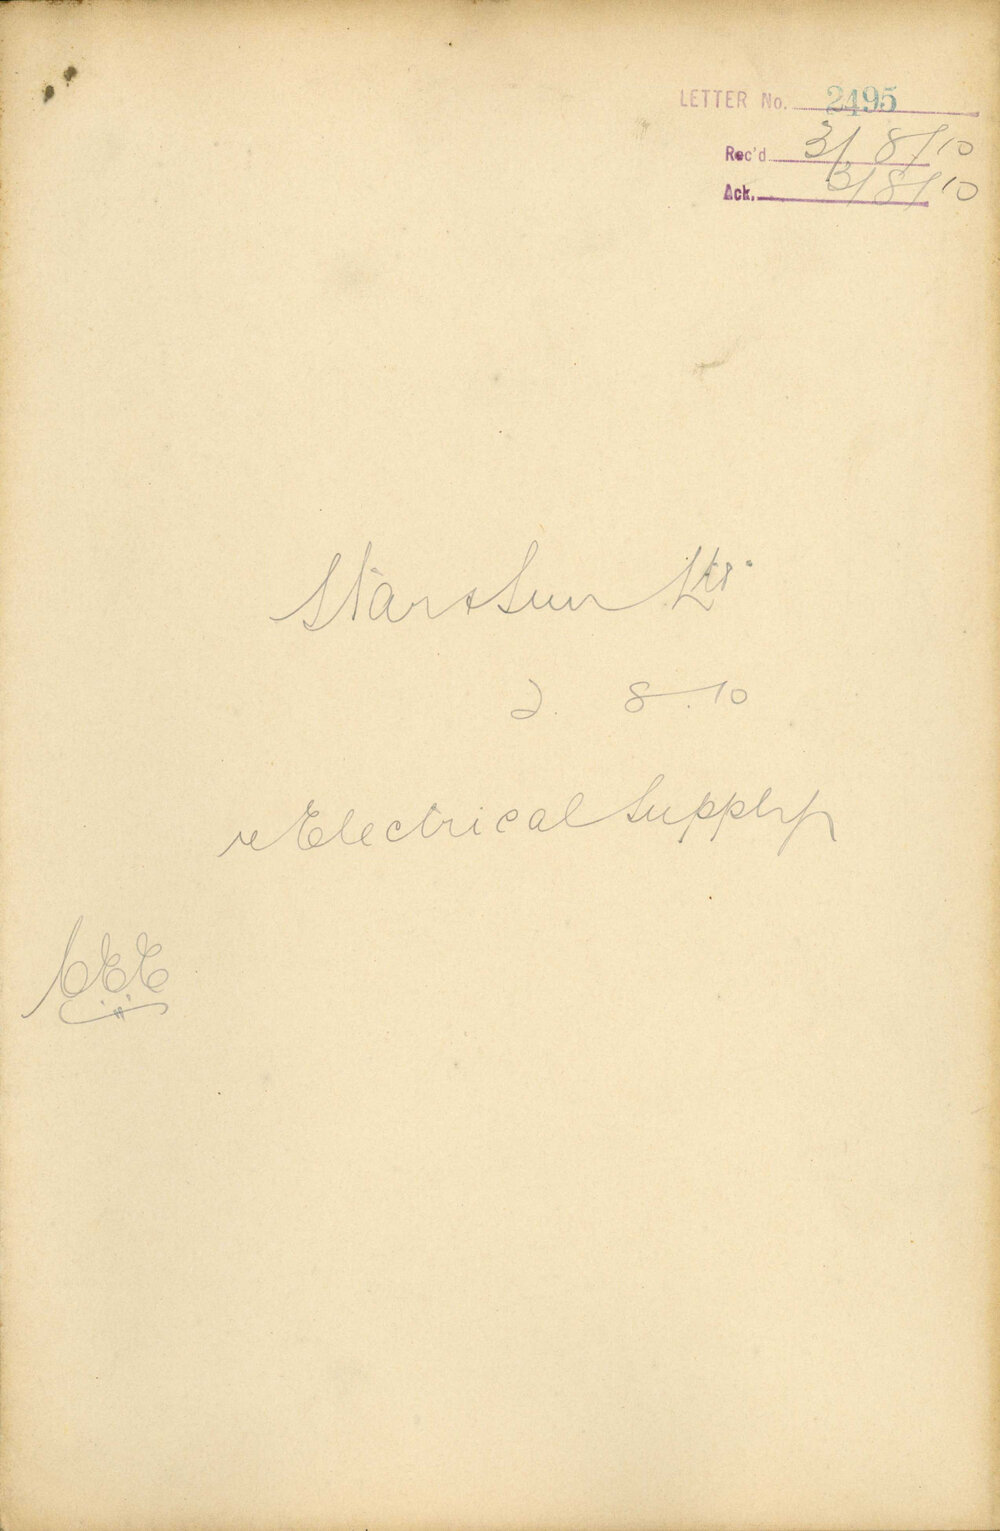 LETTER No. 2495
Rec'd 3/8/10
Ack. 3/8/10
Star & Sun Ltd.
2.8.10
re Electrical Supply
CEE